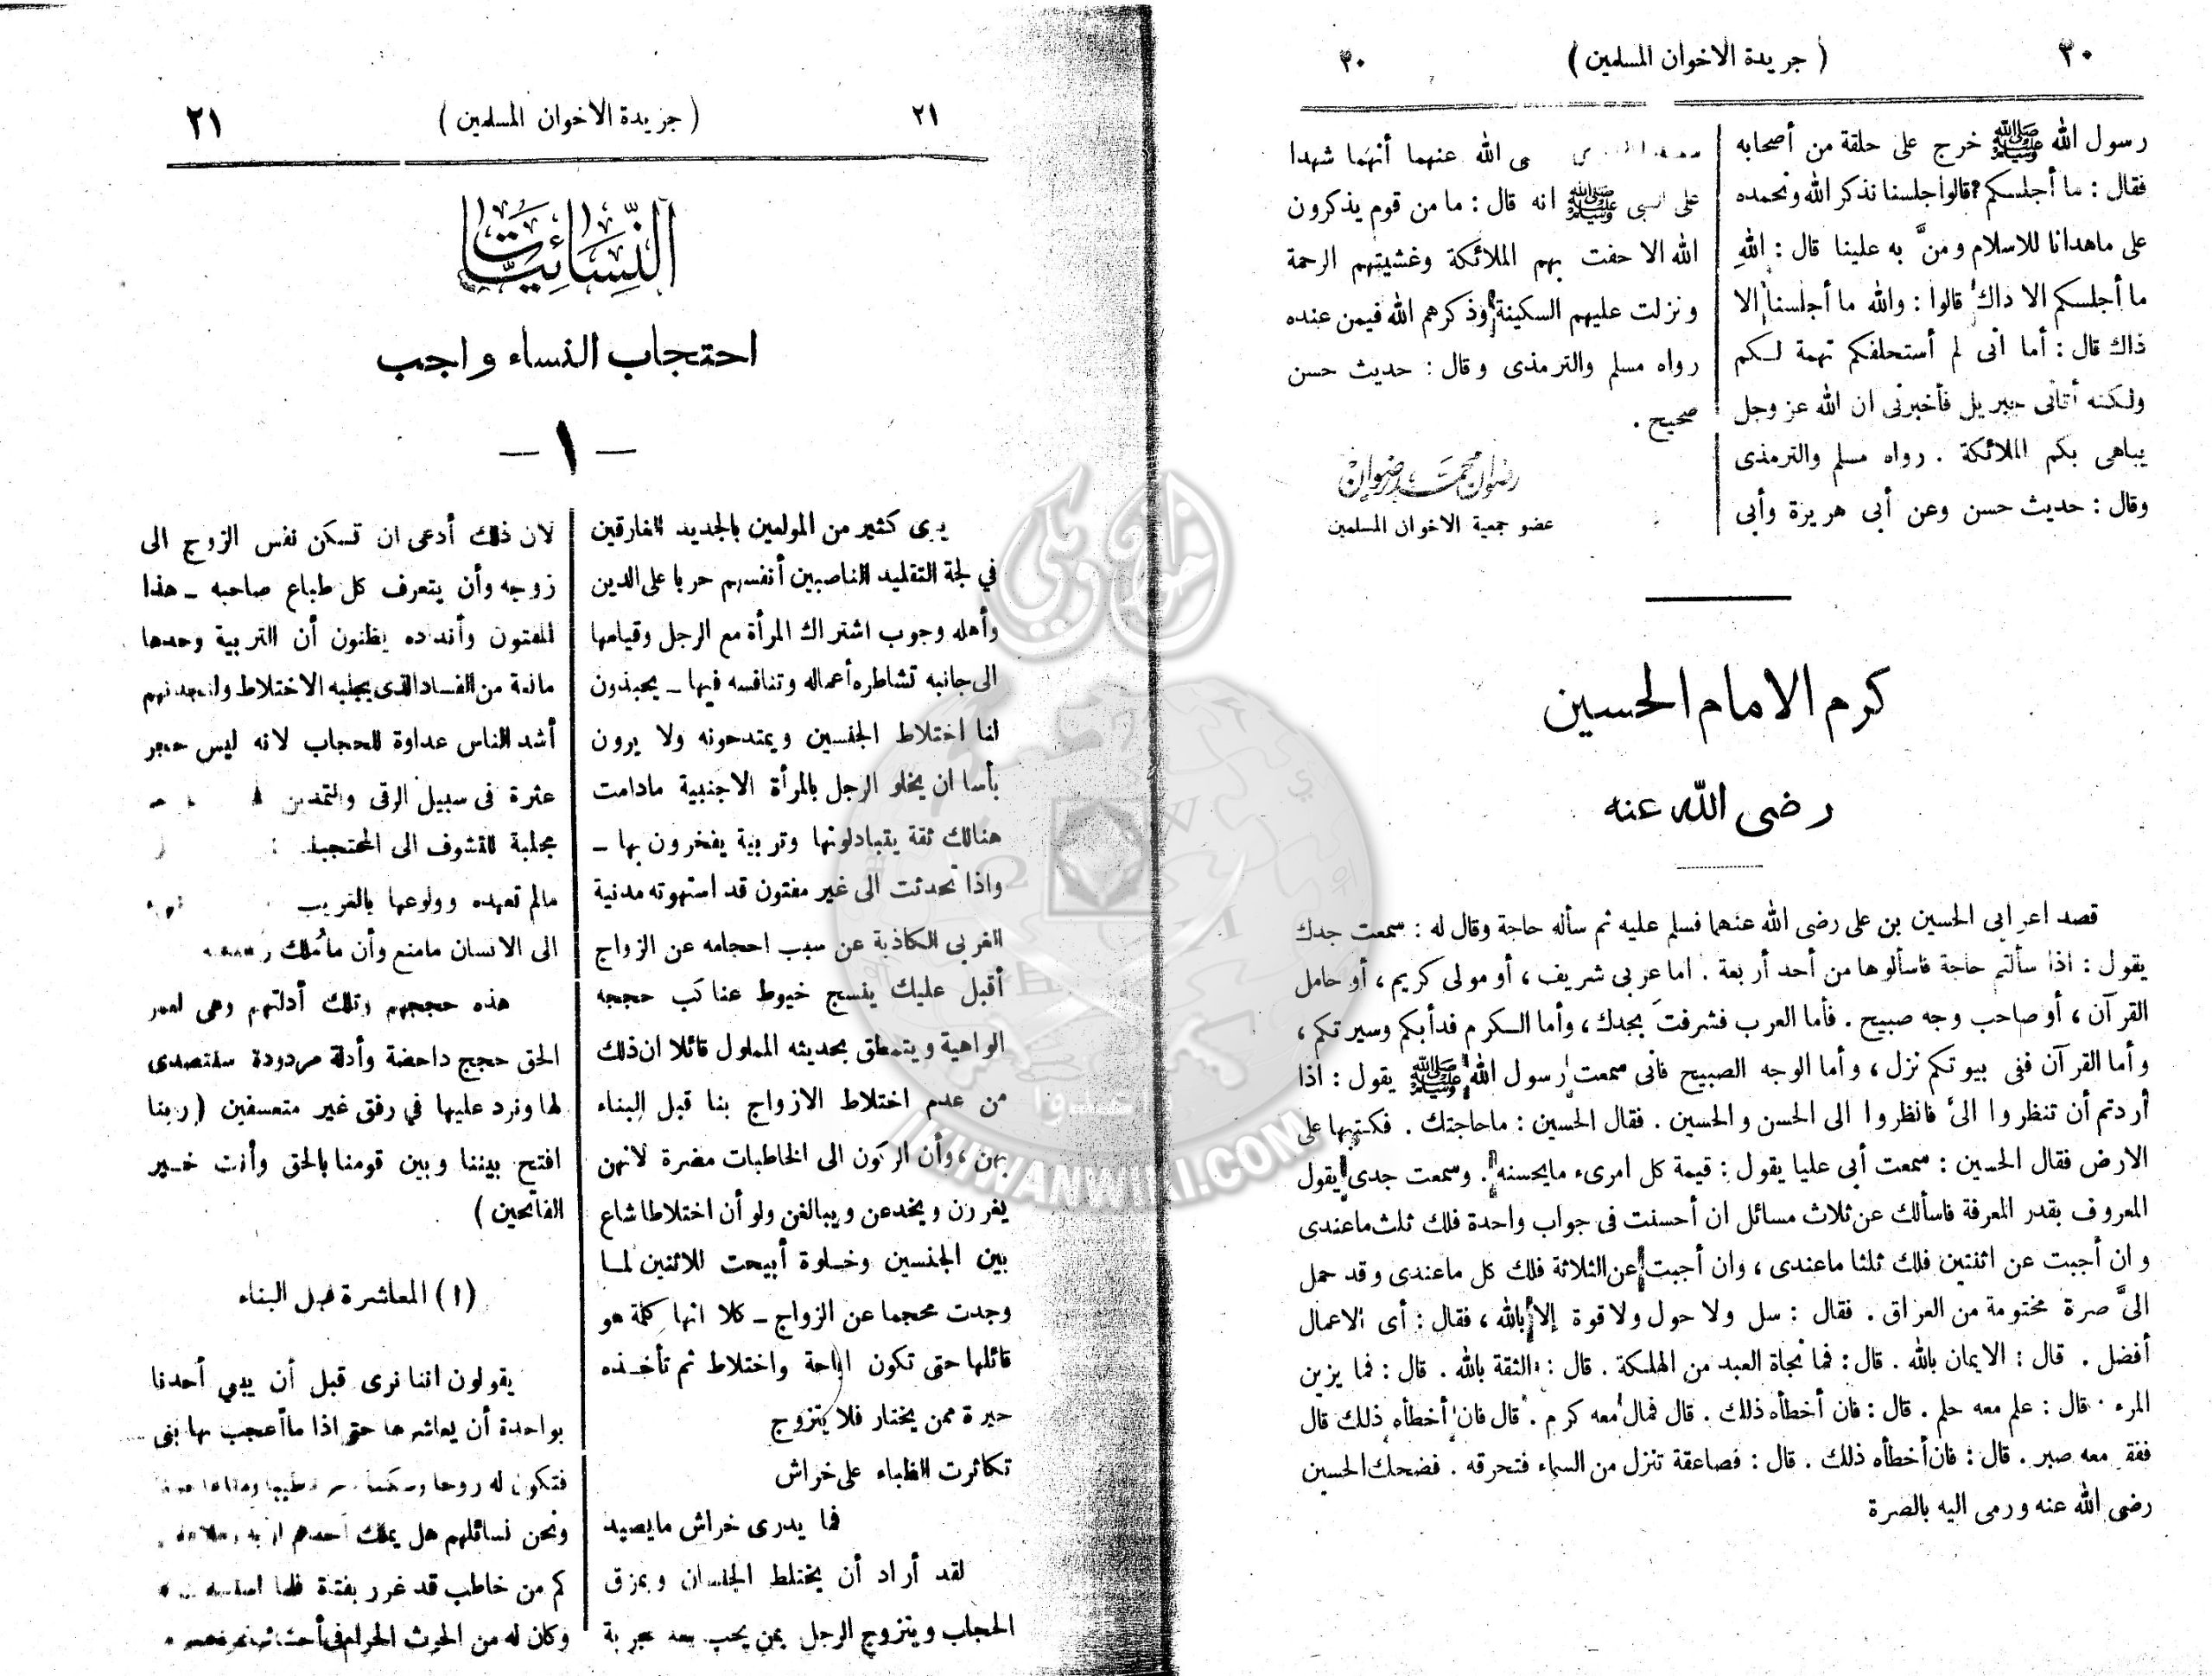 ٢٠ ( جريدة الاخوان المسلمين ) ٢٠
رسول الله ﷺ خرج على حلقة من أصحابه
فقال : ما أجلسكم ؟ قالوا جلسنا نذكر الله ونحمده
على ماهدانا للاسلام ومنَّ به علينا قال : اللهِ
ما أجلسكم الا ذاك قالوا : والله ما أجلسنا الا
ذاك قال : أما انى لم أستحلفكم تهمة لكم
ولكنه أتانى جبريل فأخبرنى ان الله عز وجل
يباهى بكم الملائكة . رواه مسلم والترمذى
وقال : حديث حسن وعن أبى هريرة وأبى
الله عنهما أنهما شهدا
على النبى ﷺ انه قال : ما من قوم يذكرون
الله الا حفت بهم الملائكة وغشيتهم الرحمة
ونزلت عليهم السكينة وذكرهم الله فيمن عنده
رواه مسلم والترمذى وقال : حديث حسن
صحيح .
رضوان محمد رضوان
عضو جمعية الاخوان المسلمين
كرم الامام الحسين
رضى الله عنه
قصد اعرابى الحسين بن على رضى الله عنهما فسلم عليه ثم سأله حاجة وقال له : سمعت جدك
يقول : اذا سألتم حاجة فاسألوها من أحد أربعة . اما عربى شريف ، أو مولى كريم ، أو حامل
القرآن ، أو صاحب وجه صبيح . فأما العرب فشرفت بجدك ، وأما الكرم فدأبكم وسيرتكم ،
وأما القرآن ففى بيوتكم نزل ، وأما الوجه الصبيح فانى سمعت رسول الله ﷺ يقول : اذا
أردتم أن تنظروا الىَّ فانظروا الى الحسن والحسين . فقال الحسين : ماحاجتك . فكتبها على
الارض فقال الحسين : سمعت أبى عليا يقول : قيمة كل امرىء مايحسنه . وسمعت جدى يقول
المعروف بقدر المعرفة فاسألك عن ثلاث مسائل ان أحسنت فى جواب واحدة فلك ثلث ماعندى
وان أجبت عن اثنتين فلك ثلثا ماعندى ، وان أجبت عن الثلاثة فلك كل ماعندى وقد حمل
الىَّ صرة مختومة من العراق . فقال : سل ولا حول ولا قوة إلا بالله ، فقال : أى الاعمال
أفضل . قال : الايمان بالله . قال : فما نجاة العبد من الهلكة . قال : الثقة بالله . قال : فما يزين
المرء . قال : علم معه حلم . قال : فان أخطأه ذلك . قال فمال معه كرم . قال فان أخطأه ذلك قال
ففقر معه صبر . قال : فان أخطأه ذلك . قال : فصاعقة تنزل من السماء فتحرقه . فضحك الحسين
رضى الله عنه ورمى اليه بالصرة
٢١ ( جريدة الاخوان المسلمين ) ٢١
النسائيات
احتجاب النساء واجب
— ١ —
يرى كثير من المولعين بالجديد الغارقين
في لجة التقليد الناصبين أنفسهم حربا على الدين
وأهله وجوب اشتراك المرأة مع الرجل وقيامها
الى جانبه تشاطره أعماله وتنافسه فيها ـ يحبذون
لنا اختلاط الجنسين ويمتدحونه ولا يرون
بأسا ان يخلو الرجل بالمرأة الاجنبية مادامت
هنالك ثقة يتبادلونها وتربية يفخرون بها ـ
واذا تحدثت الى غير مفتون قد استهوته مدنية
الغرب الكاذبة عن سبب احجامه عن الزواج
أقبل عليك ينسج خيوط عناكب حججه
الواهية ويتمطق بحديثه المملول قائلا ان ذلك
من عدم اختلاط الازواج بنا قبل البناء
بهن ، وأن الركون الى الخاطبات مضرة لانهن
يغررن ويخدعن ويبالغن ولو أن اختلاطا شاع
بين الجنسين وخلوة أبيحت للاثنين لما
وجدت محجما عن الزواج ـ كلا انها كلمة هو
قائلها حتى تكون اباحة واختلاط ثم تأخذه
حيرة ممن يختار فلا يتزوج
تكاثرت الظباء على خراش
فما يدرى خراش مايصيد
لقد أراد أن يختلط الجنسان ويمزق
الحجاب ويتزوج الرجل بمن يحب بعد تجربة
لان ذلك أدعى ان تسكن نفس الزوج الى
زوجه وأن يتعرف كل طباع صاحبه ـ هذا
المفتون وأنداده يظنون أن التربية وحدها
مانعة من الفساد الذى يجلبه الاختلاط ولتجدنهم
أشد الناس عداوة للحجاب لانه ليس حجر
عثرة فى سبيل الرقى والتمدين
مجلبة للتشوف الى المحتجبة
مالم تعهده وولوعها بالغريب
الى الانسان مامنع وأن ماملك
هذه حججهم وتلك أدلتهم وهى لعمر
الحق حجج داحضة وأدلة مردودة سنتصدى
لها ونرد عليها في رفق غير متعسفين ( ربنا
افتح بيننا وبين قومنا بالحق وأنت خير
الفاتحين )
(١) المعاشرة قبل البناء
يقولون اننا نرى قبل أن يبنى أحدنا
بواحدة أن يعاشرها حتى اذا ماأعجب بها بنى
فتكون له روحا وسكنا
ونحن نسائلهم هل يملك أحدهم
كم من خاطب قد غرر بفتاة فلما
وكان له من الحرث الحرام فى أحشائها
اخوان ويكي
وأعدوا
IKHWANWIKI.COM